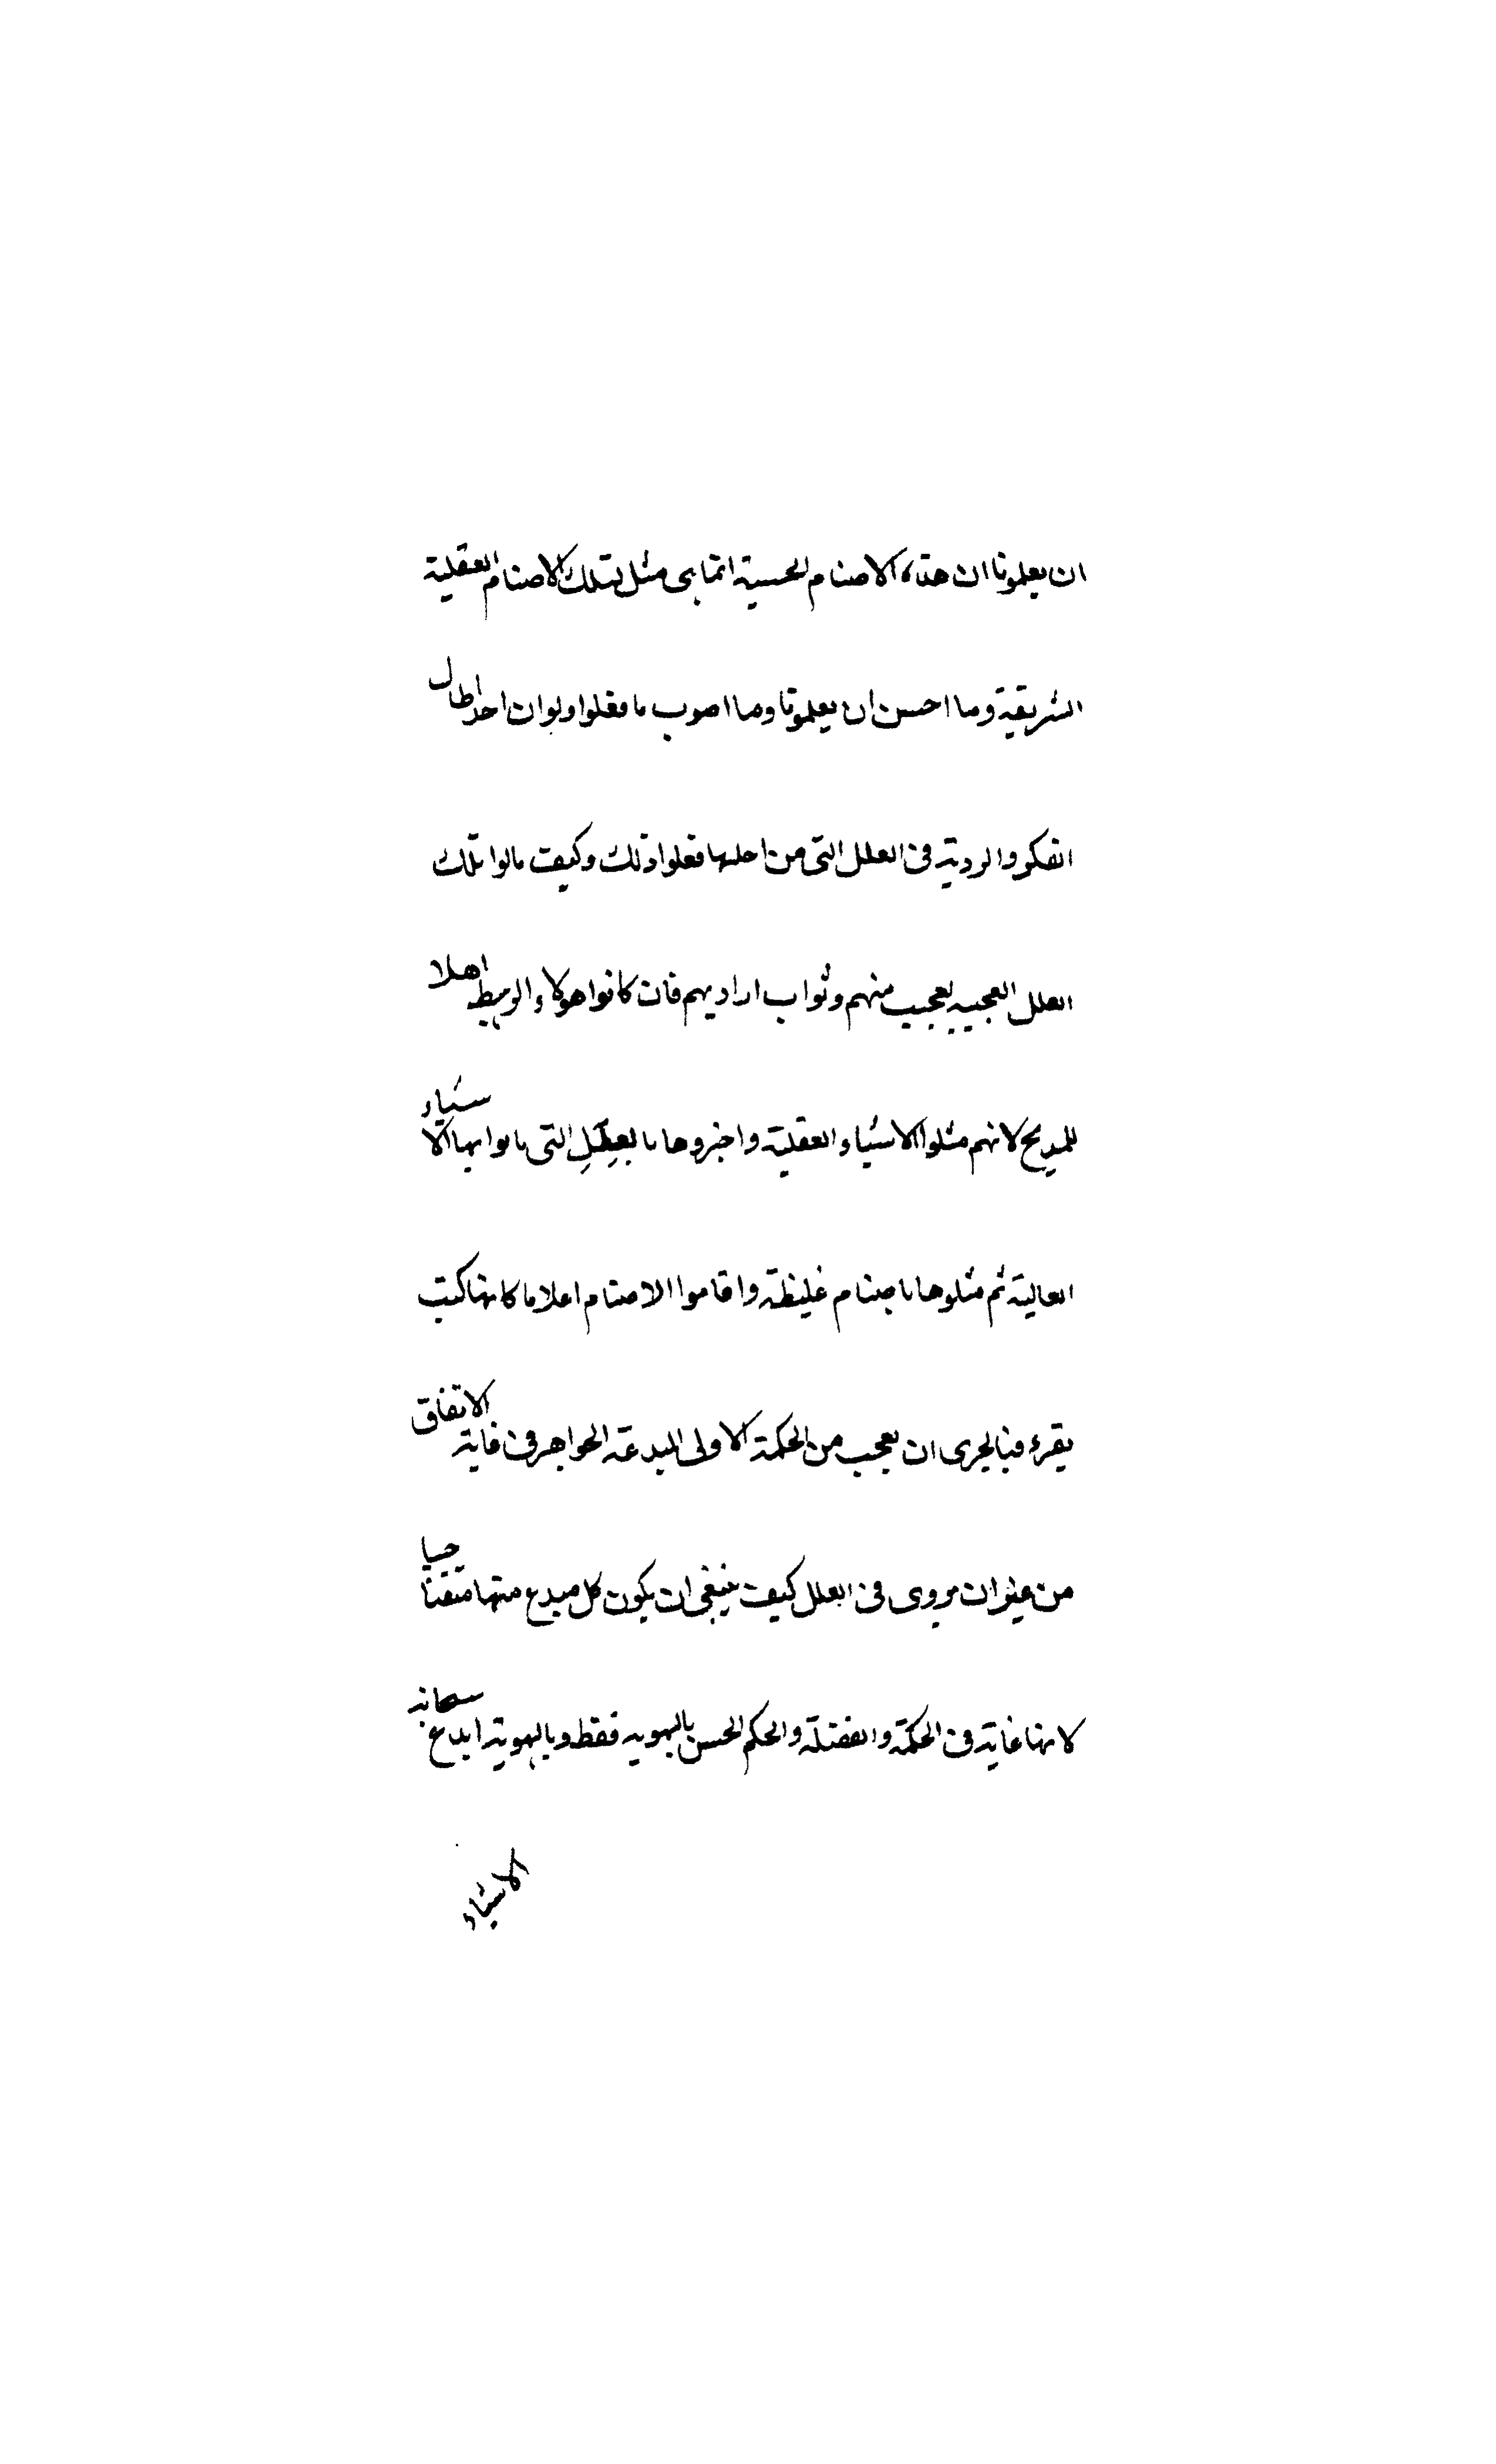 ان يعلمونا ان هذه الاصنام الحسية انما هى مثل لتلك الاصنام العقلية
الشريفة وما احسن ان يعلمونا وما اصوب ما فعلوا ولو ان احدا طال
الفكر والروية فى العلل التى من اجلها فعلوا ذلك وكيف نالوا تلك
العلل العجيبه لعجب منهم وثواب ارايهم فان كانوا هولاء الرهط اهلا
للمديح لانهم مثلوا الاشياء العقلية واخبروها بالعلل التى نالوا بها الاشياء
العالية ثم مثلوها باصنام غليظة واقاموا الاصنام اعلاما كانها كتب
يقرء فبالحرى ان نعجب من الحكمة الاولى المبدعة الجواهر فى غاية الاتفاق
من غير ان يروى فى العلل كيف ينبغى ان يكون كل مبدع منها متقنا حسنا
لانها غاية فى الحكمة والفضلة والحكم الحسن بالهويه فقط وبالهوية ابدع سبحانه
الاشياء